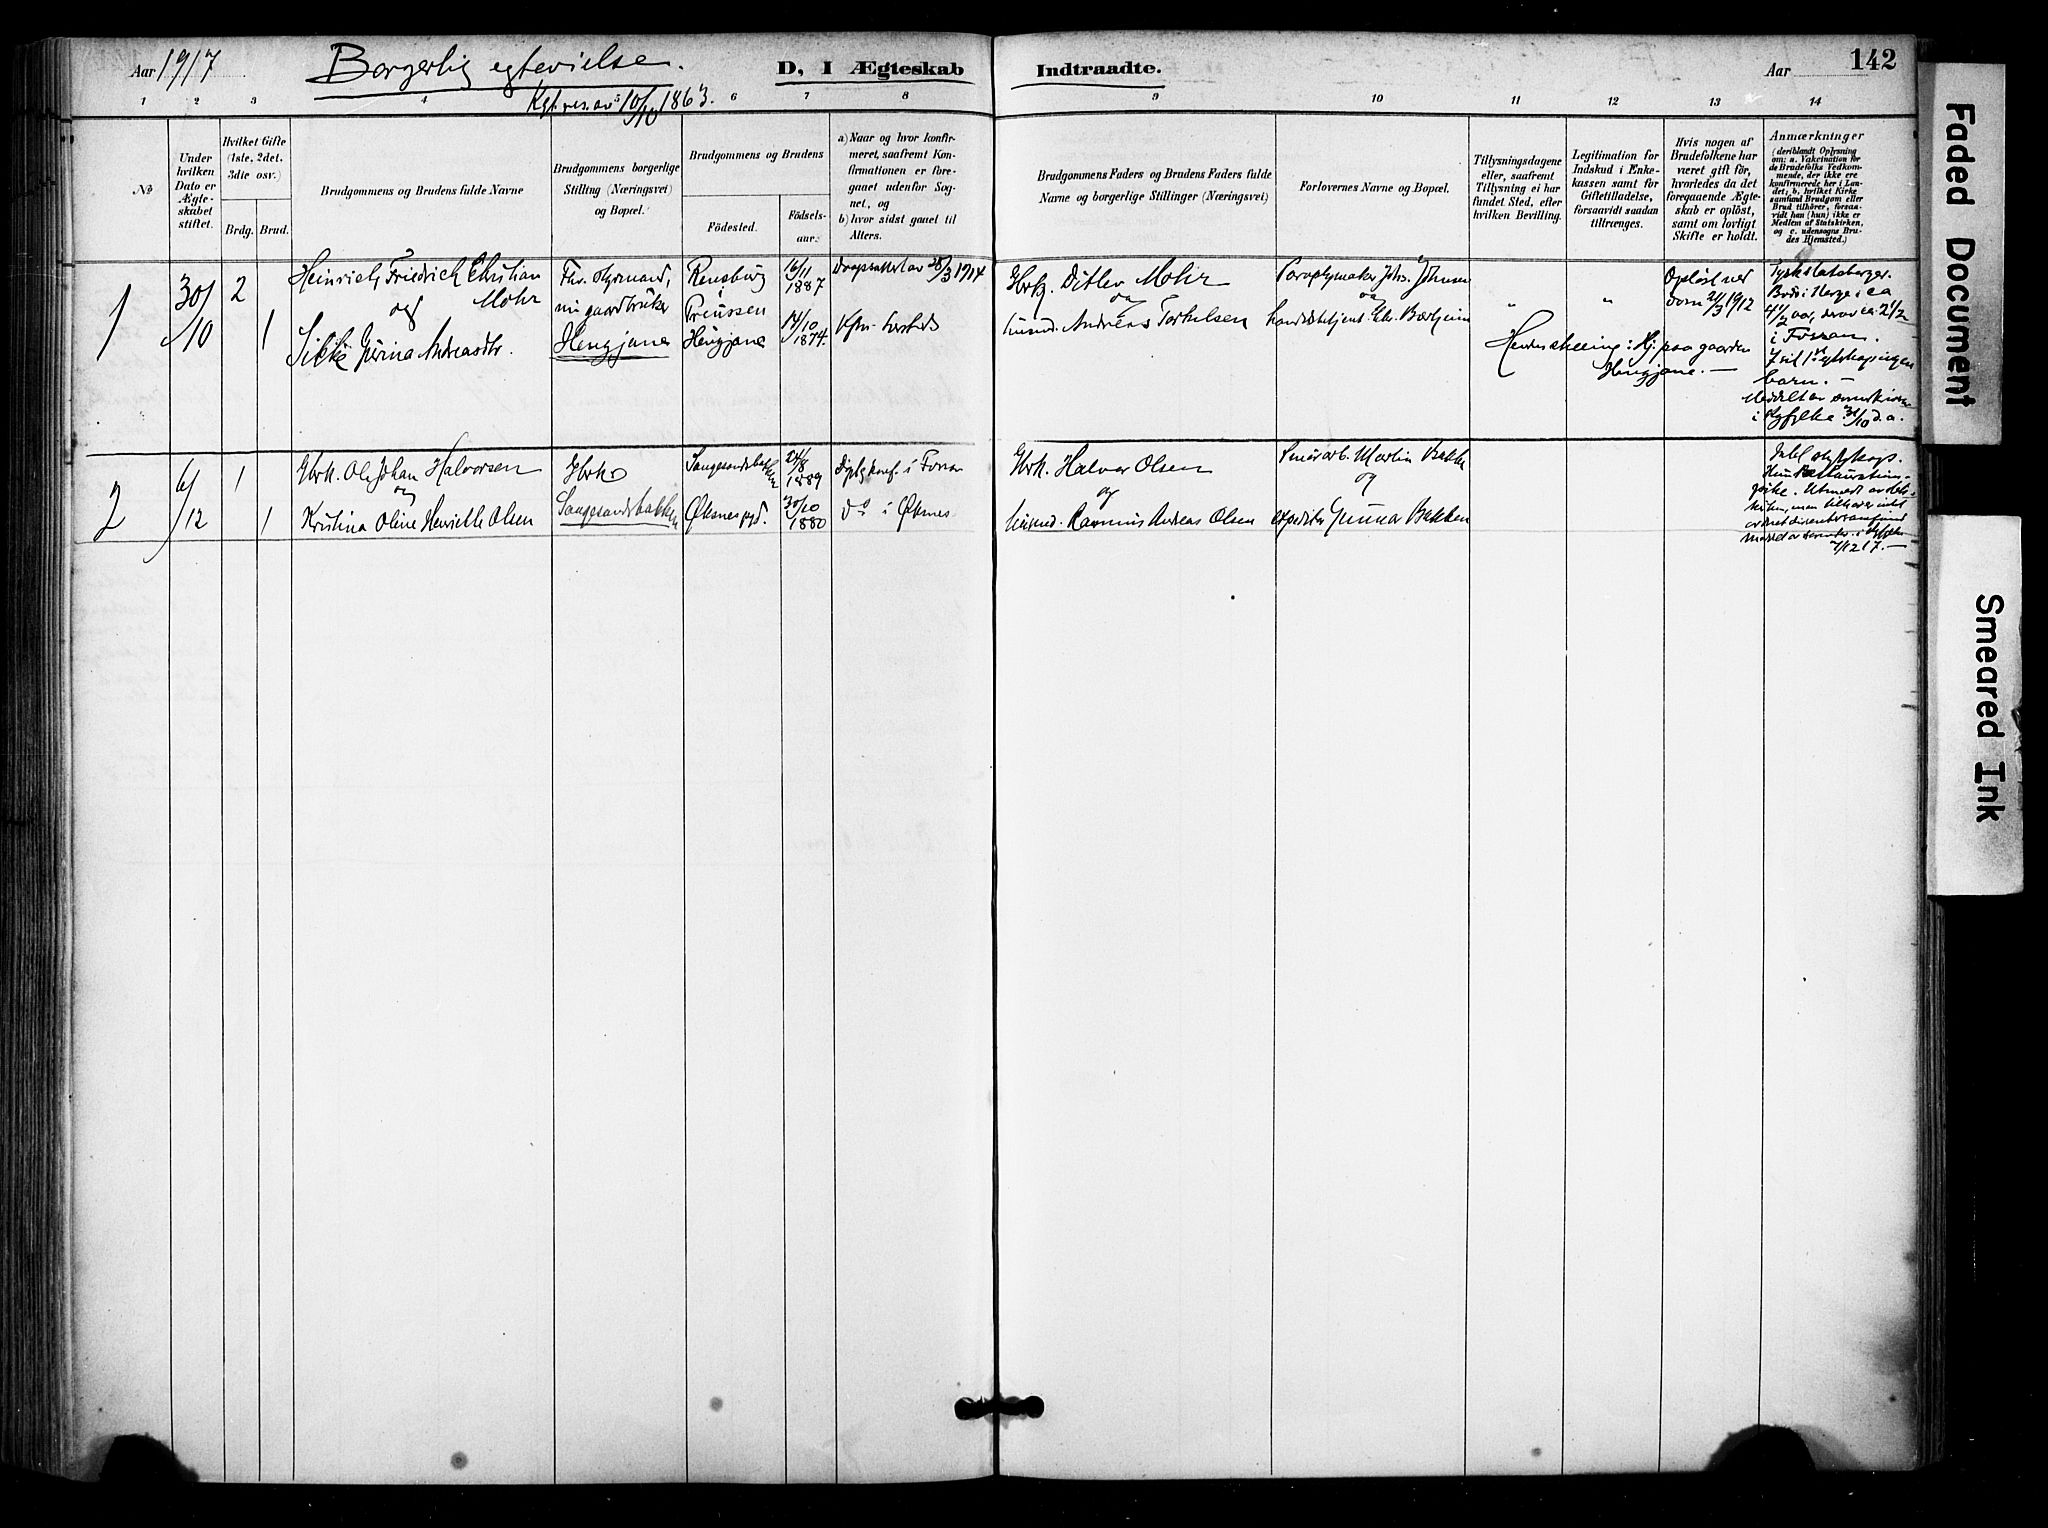 Aar 1917
Borgerlig egtevielse.
Kgl. res. av 10/10 1863.
D, I Ægteskab
Indtraadte.
Aar
142
1
2
3
4
6
7
8
9
10
11
12
13
14
No
Under hvilken Dato er Ægteskabet stiftet.
Hvilket Gifte (1ste, 2det, 3die osv.)
Brdg.
Brud.
Brudgommens og Brudens fulde Navne
Brudgommens borgerlige Stilling (Næringsvei) og Bopæl.
Brudgommens og Brudens
Fødested.
Fødselsaar.
a) Naar og hvor konfirmeret, saafremt Konfirmationen er foregaaet udenfor Sognet, og
b) hvor sidst gaaet til Alters.
Brudgommens Faders og Brudens Faders fulde Navne og borgerlige Stillinger (Næringsvei)
Forlovernes Navne og Bopæl.
Tillysningsdagene eller, saafremt Tillysning ei har fundet Sted, efter hvilken Bevilling.
Legitimation for Indskud i Enkekassen samt for Giftetilladelse, forsaavidt saadan tiltrænges.
Hvis nogen af Brudefolkene har været gift før, hvorledes da det foregaaende Ægteskab er opløst, samt om lovligt Skifte er holdt.
Anmærkninger
(deriblandt Oplysning om: a. Vakcination for de Brudefolks Vedkommende, der ikke ere konfirmerede her i Landet; b. hvilket Kirkesamfund Brudgom eller Brud tilhører, forsaavidt han (hun) ikke er Medlem af Statskirken, og c. udensogns Brudes Hjemsted.)
1
30/10
2
1
Heinrich Friedrich Christian Mohr
og
Sikke Jorina Andreasdtr.
Fhv. styrmand, nu gaardbruker
Hengjane
Rensburg i Preussen
Hengjane
16/11 1887
14/10 1874
Daapsattest av 28/3 1914
Gbrk. Ditlev Mohr
og
husmd. Andreas Torkelsen
Paraplymaker Johs. Johnsen
og
handelsbetjent Chr. Bærheim
"
"
Opløst ved dom 21/3 1912
paa gaarden Hengjane.
Tysk statsborger.
Bodd i Norge i ca 4 1/2 aar, derav ca. 2 1/2 i Forsan.
barn.
i Ryfylke 31/10 d.a.
2
6/12
1
1
Gbrk. Ole Johan Halvorsen
og
Kristina Oline Henriette Olsen
Gbrk.
Songesandsbakken
Songesandsbakken
Øksnes pgd.
24/8 1889
30/10 1880
Dpt. & konf. i Forsan
do i Øksnes
Gbrk. Halvor Olsen
og
husmd. Rasmus Andreas Olsen
Smaaarb. Martin Bakken
og
expeditør Gunnar Bakken
7/12 17.
Faded Document
Smeared Ink